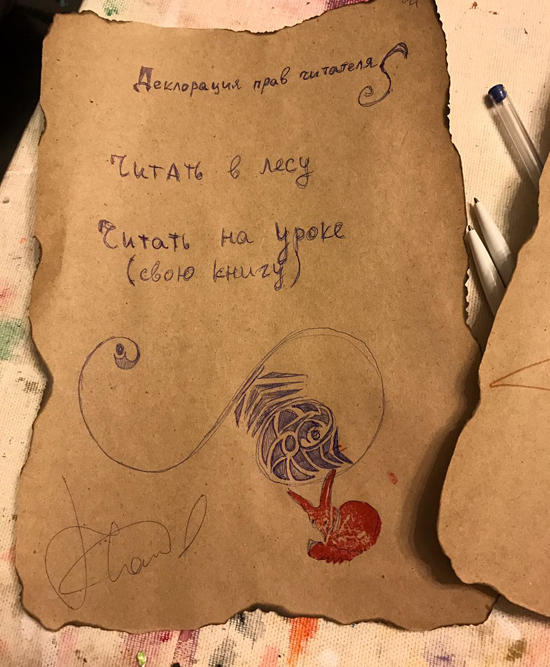 Деклорация прав читателя
Читать в лесу
Читать на уроке
(свою книгу)